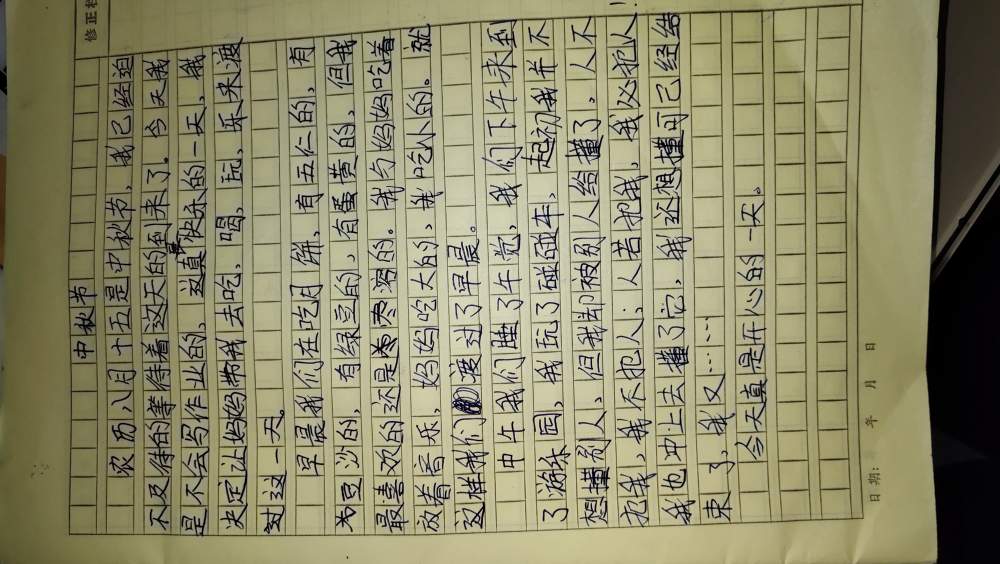 修正栏
中秋节
农历八月十五是中秋节，我已经迫
不及待的等待着这天的到来了。今天我
是不会写作业的，这真是快乐的一天，我
决定让妈妈带我去吃，喝，玩，乐来渡
过这一天。
早晨我们在吃月饼，有五仁的，有
豆沙的，有绿豆的，有蛋黄的，但我
最喜欢的还是枣溶的。我与妈妈吃着
放着音乐，妈妈吃大的，我吃小的。就
这样我们渡过了早晨。
中午我们睡了午觉，我们下午来到
了游乐园，我玩了碰碰车，起初我并不
想撞别人，但我却被别人给撞了，人不
犯我，我不犯人；人若犯我，我必犯人！
我也冲上去撞了它，我还想撞可已经结
束了，我又……
今天真是开心的一天。
日期： 年 月 日